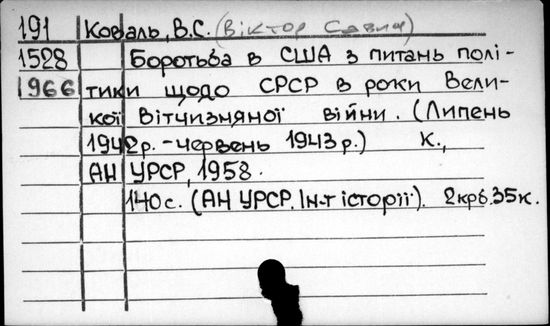 191 Коваль, В.С. (Віктор Савич)
1528 Боротьба в США з питань полі-
1966 тики щодо СРСР в роки Вели-
кої Вітчизняної війни. (Липень
1942р. - червень 1943 р.) К.,
АН УРСР, 1958.
140 с. (АН УРСР. Ін-т історії). 2крб.35к.